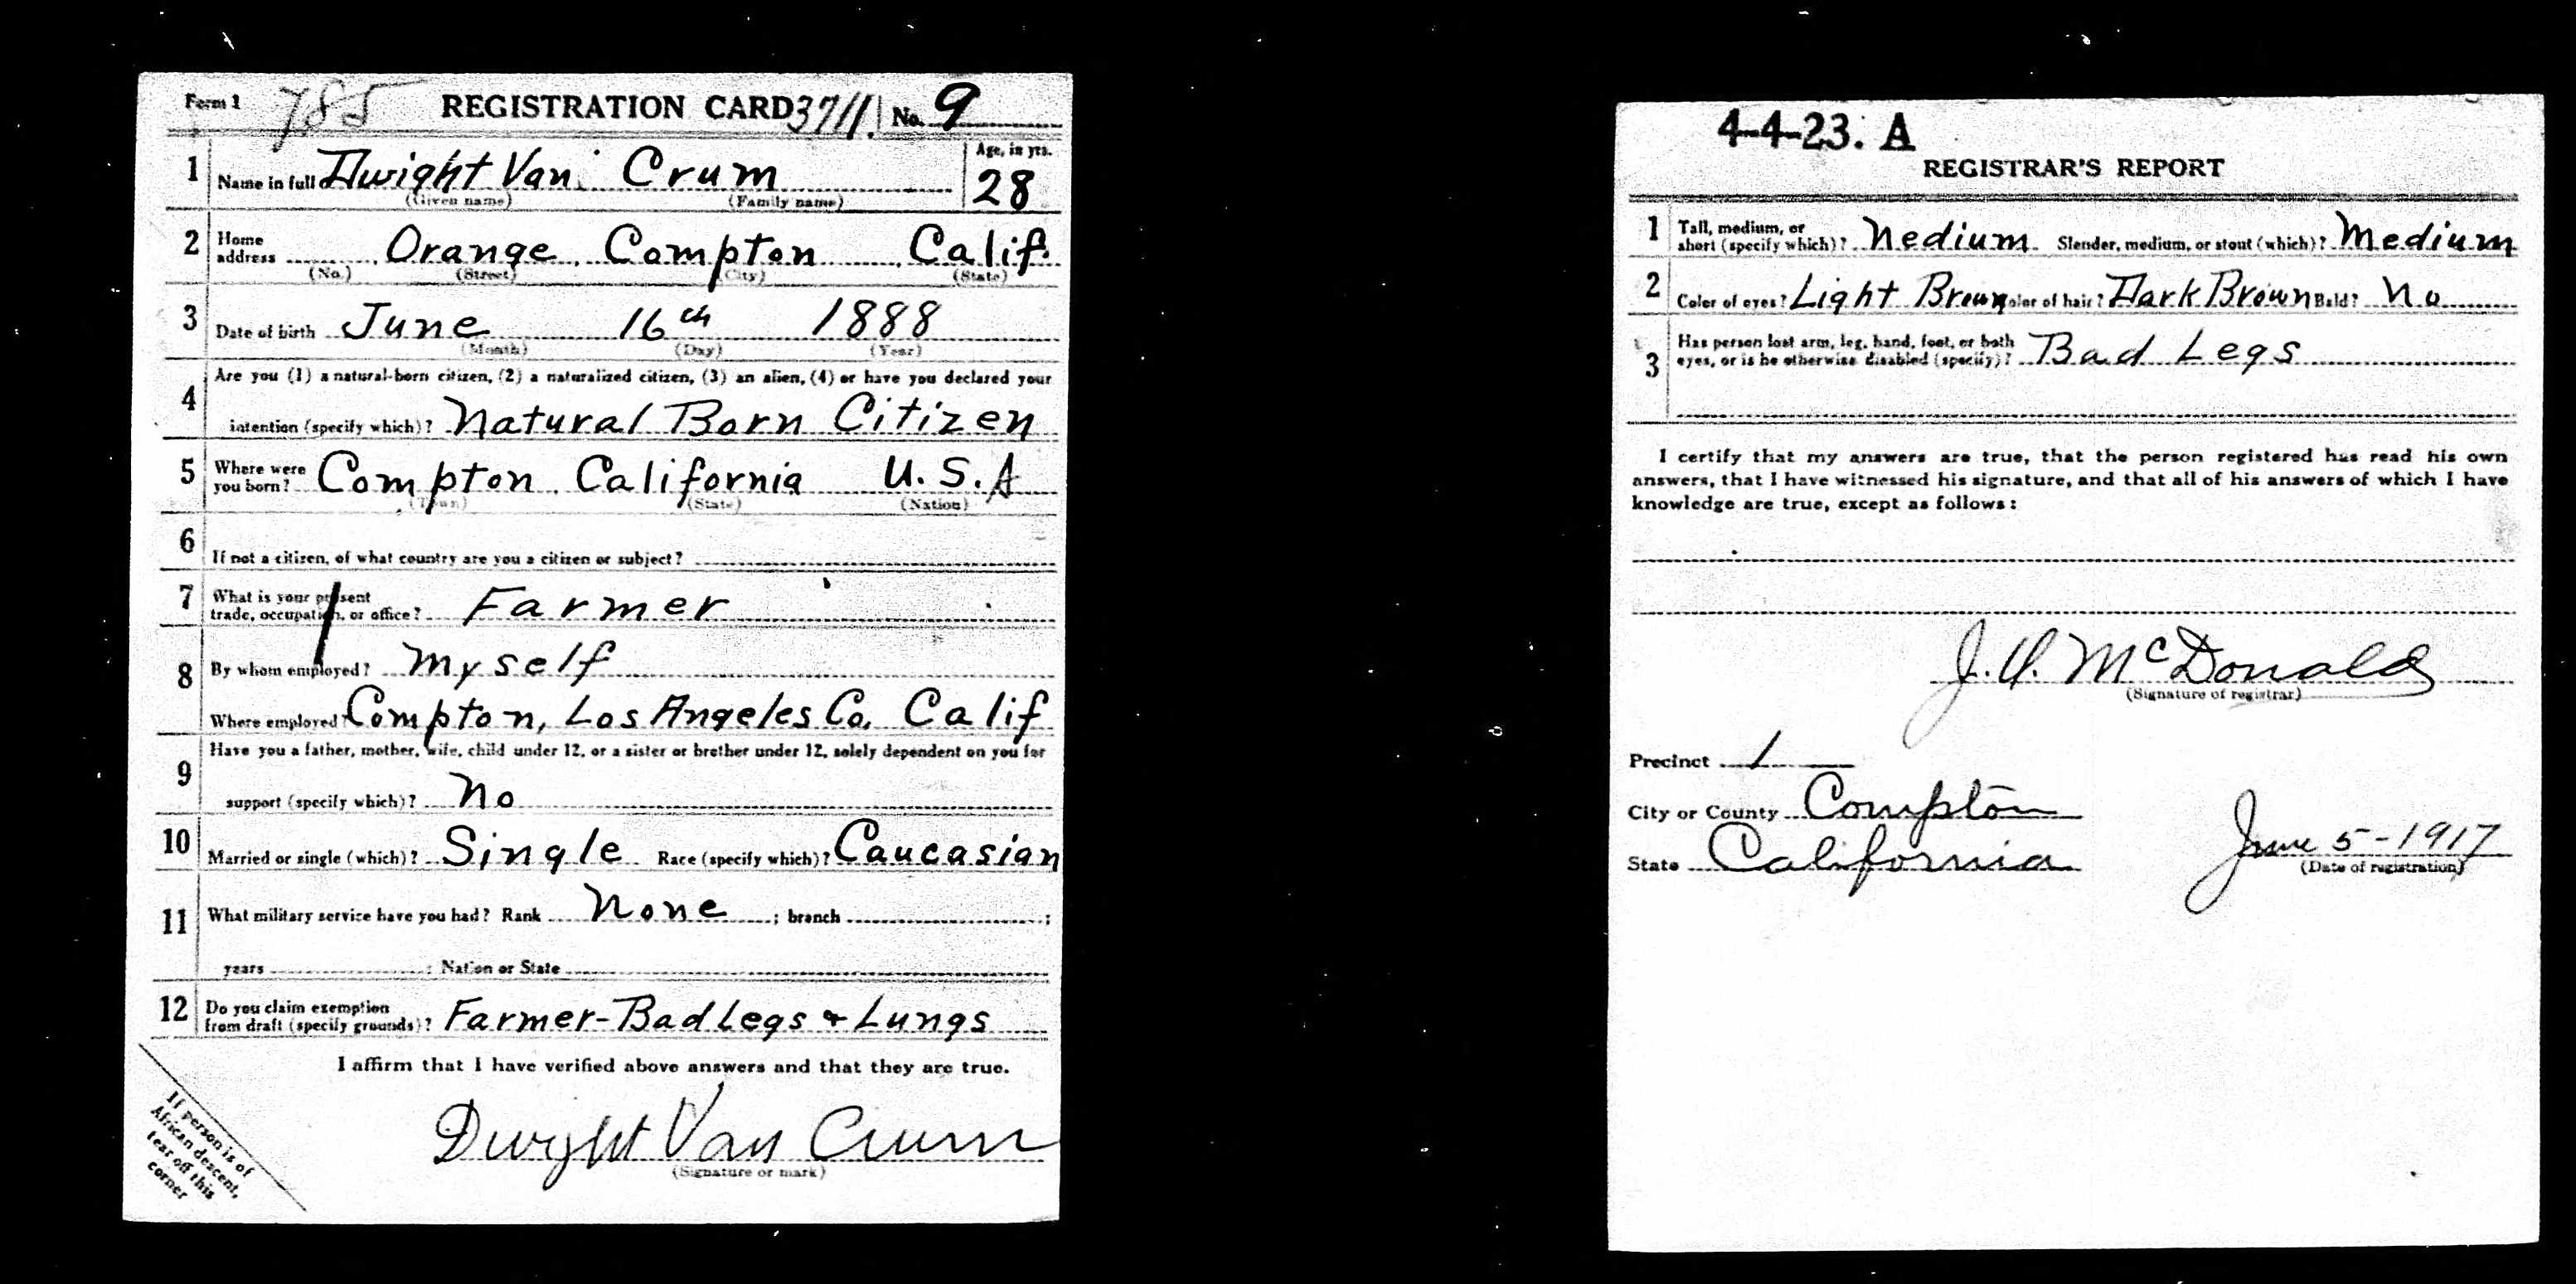 Form 1 785 REGISTRATION CARD 3711. No. 9
1 Name in full Dwight Van Crum Age, in yrs.
(Given name) (Family name) 28
2 Home address Orange Compton Calif.
(No.) (Street) (City) (State)
3 Date of birth June 16th 1888
(Month) (Day) (Year)
Are you (1) a natural-born citizen, (2) a naturalized citizen, (3) an alien, (4) or have you declared your
4 intention (specify which)? Natural Born Citizen
5 Where were you born? Compton California U.S.A
(Town) (State) (Nation)
6 If not a citizen, of what country are you a citizen or subject?
7 What is your present
trade, occupation, or office? Farmer
8 By whom employed? Myself
Where employed? Compton, Los Angeles Co. Calif
Have you a father, mother, wife, child under 12, or a sister or brother under 12, solely dependent on you for
9 support (specify which)? No
10 Married or single (which)? Single Race (specify which)? Caucasian
11 What military service have you had? Rank None ; branch ;
years ; Nation or State
12 Do you claim exemption
from draft (specify grounds)? Farmer-Bad Legs & Lungs
I affirm that I have verified above answers and that they are true.
Dwight Van Crum
(Signature or mark)
If person is of
African descent,
tear off this
corner
4-4-23. A
REGISTRAR'S REPORT
1 Tall, medium, or
short (specify which)? Medium Slender, medium, or stout (which)? Medium
2 Color of eyes? Light Brown Color of hair? Dark Brown Bald? No
3 Has person lost arm, leg, hand, foot, or both
eyes, or is he otherwise disabled (specify)? Bad Legs
I certify that my answers are true, that the person registered has read his own
answers, that I have witnessed his signature, and that all of his answers of which I have
knowledge are true, except as follows:
McDonald
(Signature of registrar)
Precinct 1
City or County Compton
State California June 5-1917
(Date of registration)